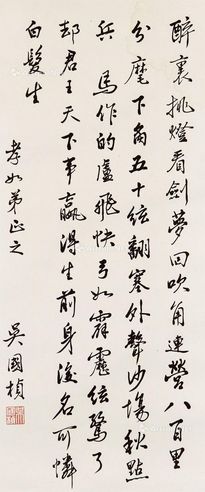 醉裏挑燈看劍夢回吹角連營八百里
分麾下炙五十絃翻塞外聲沙場秋點
兵 馬作的盧飛快弓如霹靂絃驚了
却君王天下事贏得生前身後名可憐
白髮生
孝如弟正之
吳國楨